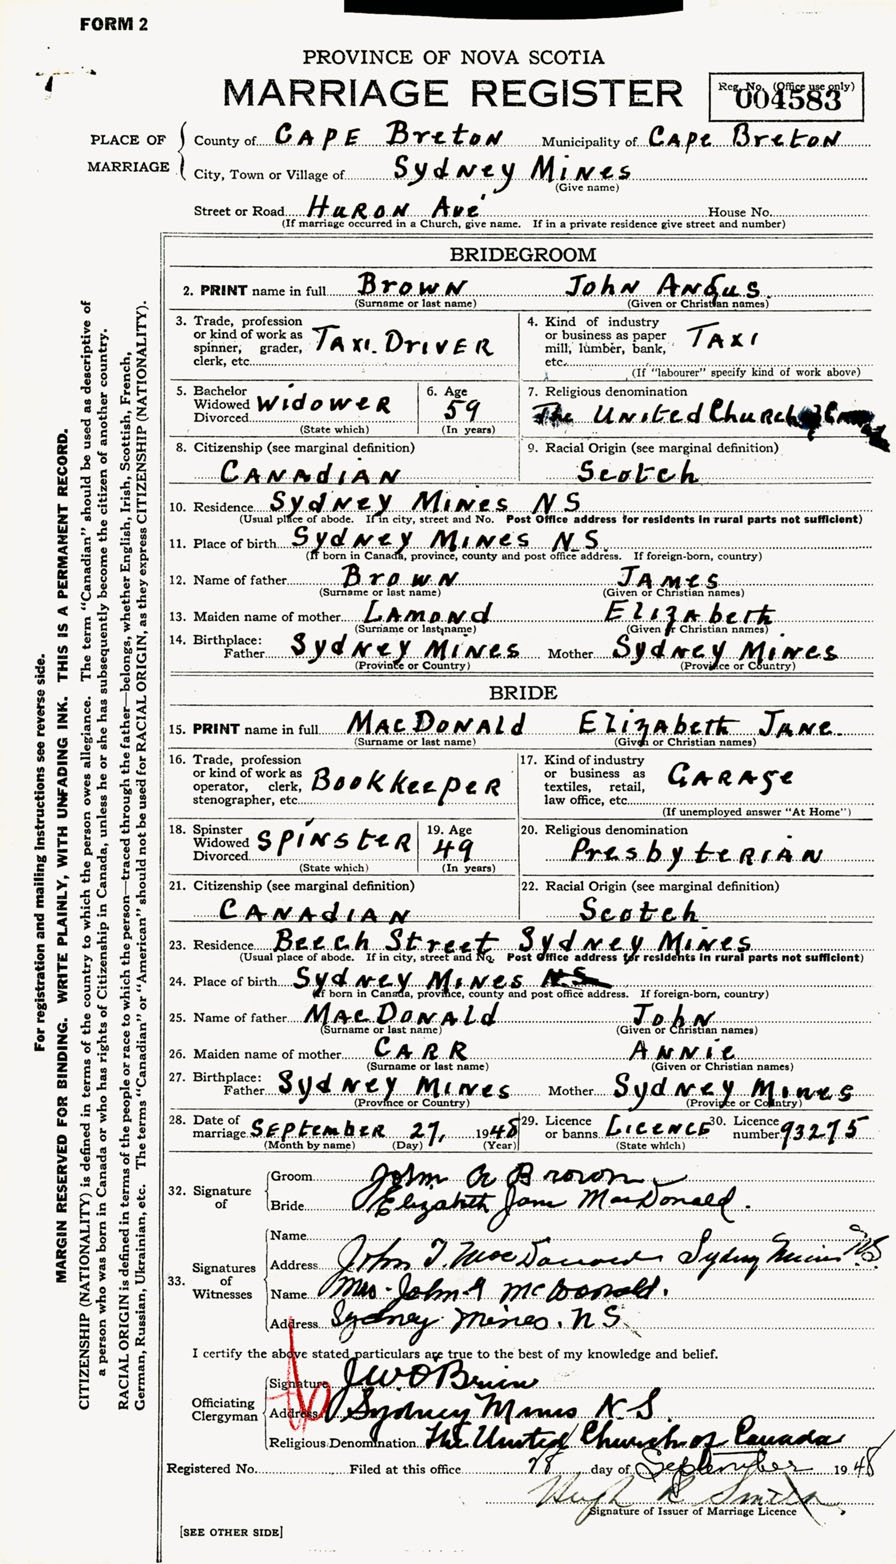 FORM 2
PROVINCE OF NOVA SCOTIA
MARRIAGE REGISTER
Reg. No. (Office use only)
004583
PLACE OF MARRIAGE
County of CAPE Breton Municipality of Cape Breton
City, Town or Village of Sydney Mines
(Give name)
Street or Road Huron Ave House No.
(If marriage occurred in a Church, give name. If in a private residence give street and number)
BRIDEGROOM
2. PRINT name in full Brown John Angus.
(Surname or last name) (Given or Christian names)
3. Trade, profession or kind of work as spinner, grader, clerk, etc. Taxi. Driver
4. Kind of industry or business as paper mill, lumber, bank, etc. Taxi
(If "labourer" specify kind of work above)
5. Bachelor Widowed Divorced Widower
(State which)
6. Age 59
(In years)
7. Religious denomination
The United Church
8. Citizenship (see marginal definition)
Canadian
9. Racial Origin (see marginal definition)
Scotch
10. Residence Sydney Mines NS
(Usual place of abode. If in city, street and No. Post Office address for residents in rural parts not sufficient)
11. Place of birth Sydney Mines N.S.
(If born in Canada, province, county and post office address. If foreign-born, country)
12. Name of father Brown James
(Surname or last name) (Given or Christian names)
13. Maiden name of mother Lamond Elizabeth
(Surname or last name) (Given or Christian names)
14. Birthplace:
Father Sydney Mines Mother Sydney Mines
(Province or Country) (Province or Country)
BRIDE
15. PRINT name in full MacDonald Elizabeth Jane.
(Surname or last name) (Given or Christian names)
16. Trade, profession or kind of work as operator, clerk, stenographer, etc. Bookkeeper
17. Kind of industry or business as textiles, retail, law office, etc. Garage
(If unemployed answer "At Home")
18. Spinster Widowed Divorced Spinster
(State which)
19. Age 49
(In years)
20. Religious denomination
Presbyterian
21. Citizenship (see marginal definition)
Canadian
22. Racial Origin (see marginal definition)
Scotch
23. Residence Beech Street Sydney Mines
(Usual place of abode. If in city, street and No. Post Office address for residents in rural parts not sufficient)
24. Place of birth Sydney Mines
(If born in Canada, province, county and post office address. If foreign-born, country)
25. Name of father MacDonald John
(Surname or last name) (Given or Christian names)
26. Maiden name of mother Carr Annie
(Surname or last name) (Given or Christian names)
27. Birthplace:
Father Sydney Mines Mother Sydney Mines
(Province or Country) (Province or Country)
28. Date of marriage September 27, 1948
(Month by name) (Day) (Year)
29. Licence or banns Licence
(State which)
30. Licence number 93275
32. Signature of
Groom John A Brown
Bride Elizabeth Jane MacDonald.
33. Signatures of Witnesses
Name
Address John T. MacDonald Sydney Mines N.S.
Name Mrs. John T McDonald.
Address Sydney Mines. N S
I certify the above stated particulars are true to the best of my knowledge and belief.
Officiating Clergyman
Signature J W O'Brien
Address Sydney Mines N.S.
Religious Denomination The United Church of Canada
Registered No. Filed at this office 28 day of September 1948
Hugh R Smith
Signature of Issuer of Marriage Licence
[SEE OTHER SIDE]
For registration and mailing instructions see reverse side.
MARGIN RESERVED FOR BINDING. WRITE PLAINLY, WITH UNFADING INK. THIS IS A PERMANENT RECORD.
CITIZENSHIP (NATIONALITY) is defined in terms of the country to which the person owes allegiance. The term "Canadian" should be used as descriptive of
a person who was born in Canada or who has rights of Citizenship in Canada, unless he or she has subsequently become the citizen of another country.
RACIAL ORIGIN is defined in terms of the people or race to which the person—traced through the father—belongs, whether English, Irish, Scottish, French,
German, Russian, Ukrainian, etc. The terms "Canadian" or "American" should not be used for RACIAL ORIGIN, as they express CITIZENSHIP (NATIONALITY).